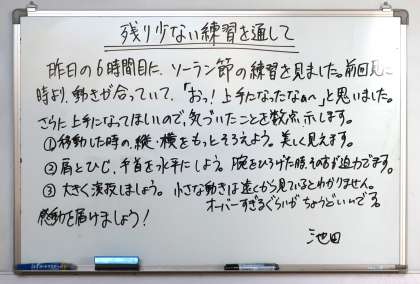 残り少ない練習を通して
昨日の6時間目に、ソーラン節の練習を見ました。前回見た
時より、動きが合っていて、「おっ!上手になったなぁ〜」と思いました。
さらに上手になってほしいので、気づいたことを数点示します。
①移動した時の、縦・横をもっとそろえよう。美しく見えます。
②肩とひじ、手首を水平にしよう。腕をひろげた時、その方が迫力でます。
③大きく演技しましょう。小さな動きは遠くから見ているとわかりません。
オーバーすぎるぐらいがちょうどいいです
感動を届けましょう!
池田